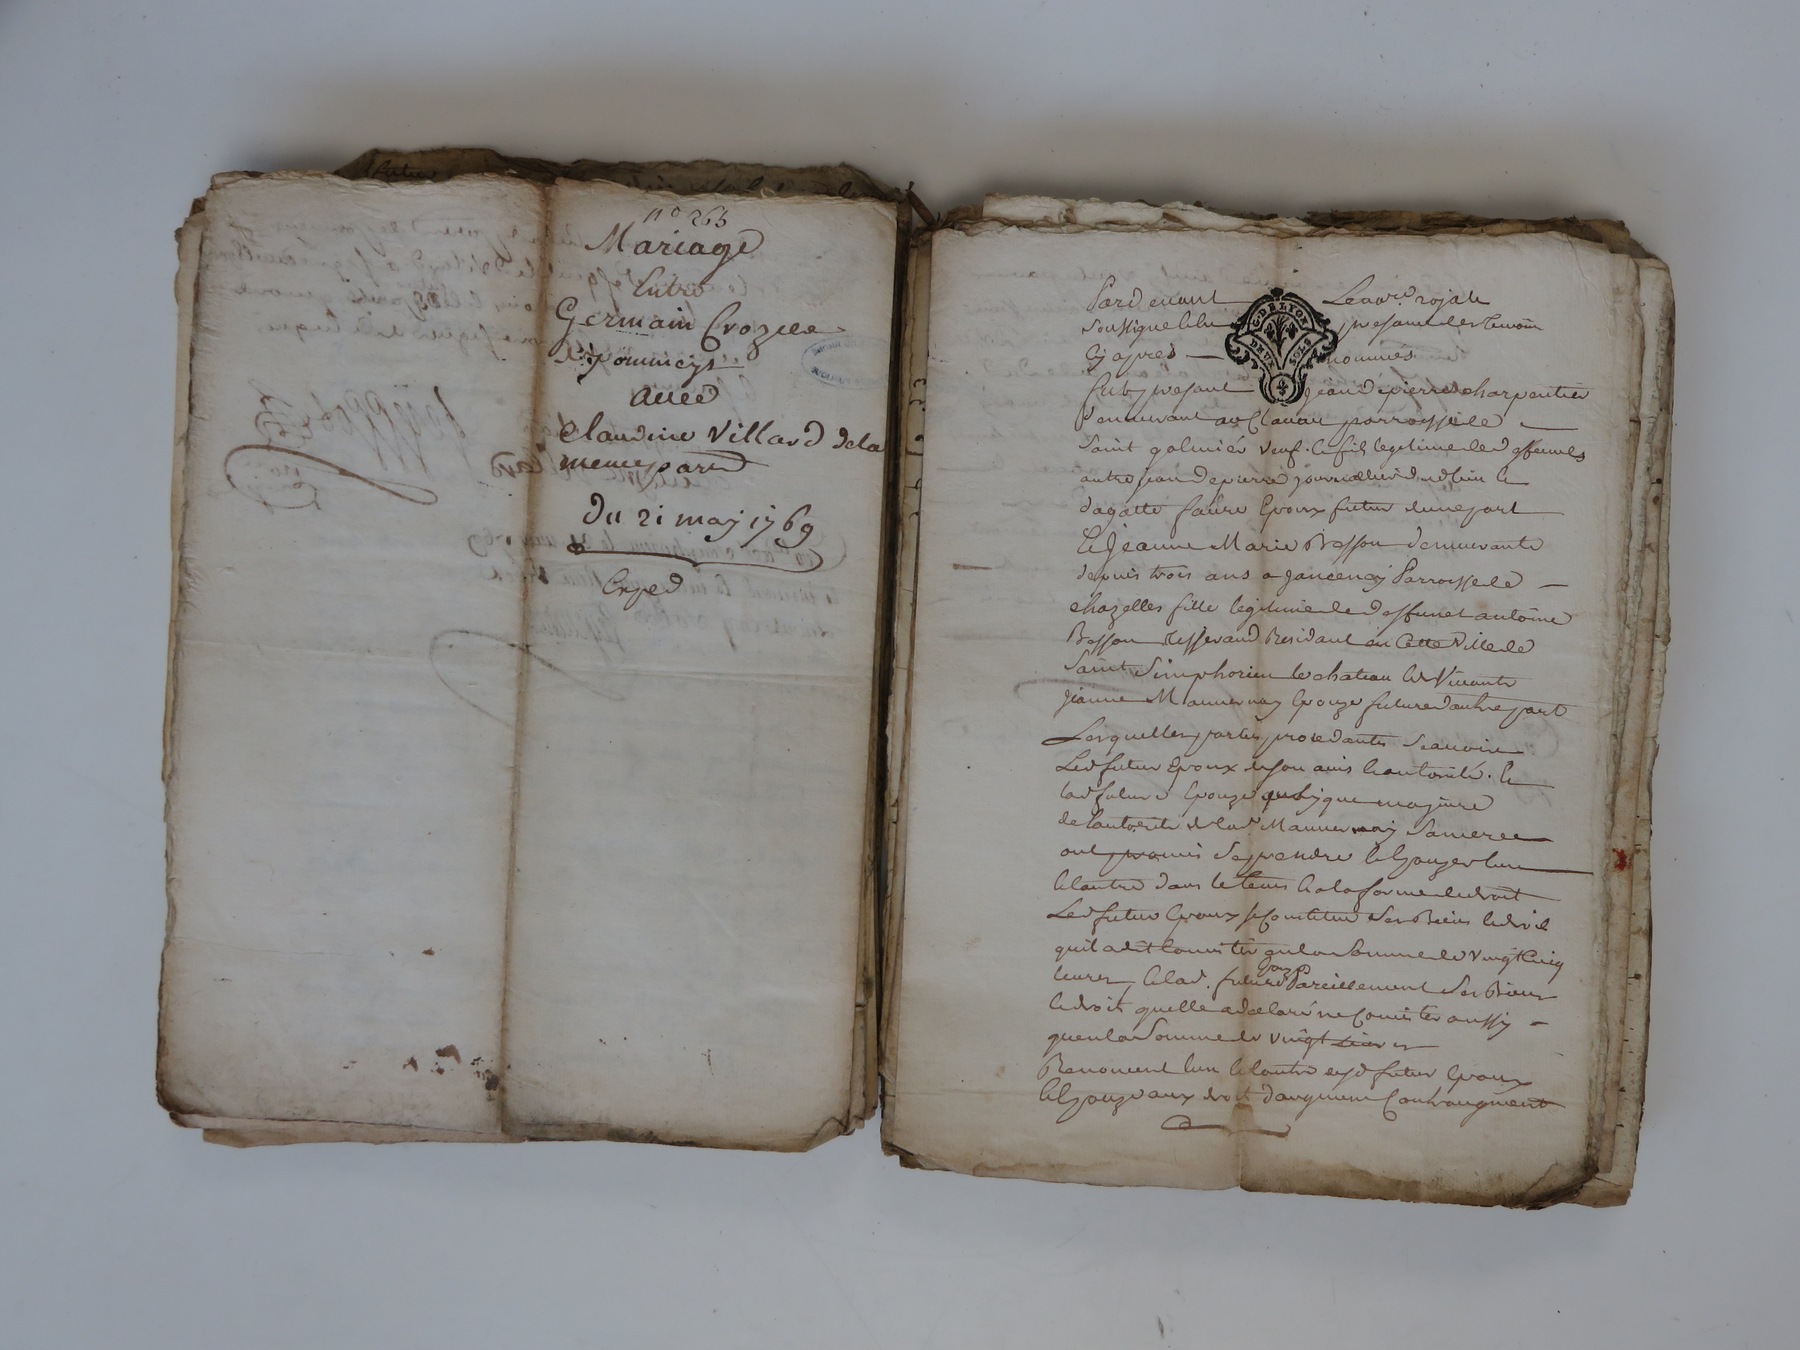 n° 265
Mariage
Entre
Germain Crozier
de pommeys
avec
Claudine Villard de la
meme par
du 21 may 1769
Exped
Pardevant Le no.re royale
soussigne presence des temoins
cy apres — nommés
fut present jean depierre charpentier
demeurant au Clavau parroisse de
saint galmiér veuf fils legitime de deffunts
autre jean depierre journallier dud lieu et
dagatte faure Epoux futur dune part
Et Jeanne Marie Basson demeurante
depuis trois ans a jancenay Parroisse de —
chazelles fille legitime de deffunct antoine
Basson tisserand Residant en Cette Ville de
Saint Simphorien le chateau et Vivante
jeanne Maunernay Epouze future dautre part
Lesquelles parties procedantes scauoir
Led futur Epoux de son auis et autorité. Et
lad future Epouze quoyque majeure
de lautorité de lad Maunernay sa mere
ont promis se prendre et Epouzer lun
et lautre dans le tems et a la forme de droit
Led futur Epoux se Constitue ses Biens et droit
quil a dit Consister en la somme de vingt Cinq
liures, et lad. future Epouze Pareillement ses Biens
et droits quelle a declaré ne Consister aussy —
quen la somme de vingt
Renoncent lun et lautre esd futur Epoux
et Epouze aux droit daugment Contraugment
C. DE LYON
DEUX SOLS